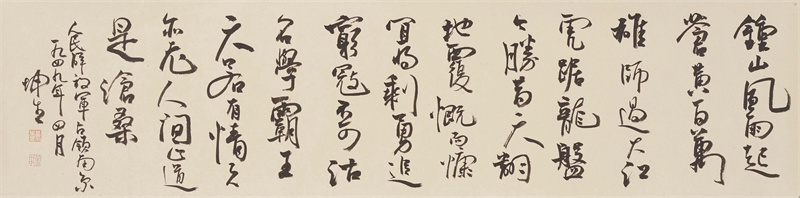 鐘山風雨起
蒼黃百萬
雄師過大江
虎踞龍盤
今勝昔天翻
地覆慨而慷
宜將剩勇追
窮寇不可沽
名學霸王
天若有情天
亦老人間正道
是滄桑
人民解放軍占領南京
一九四九年四月